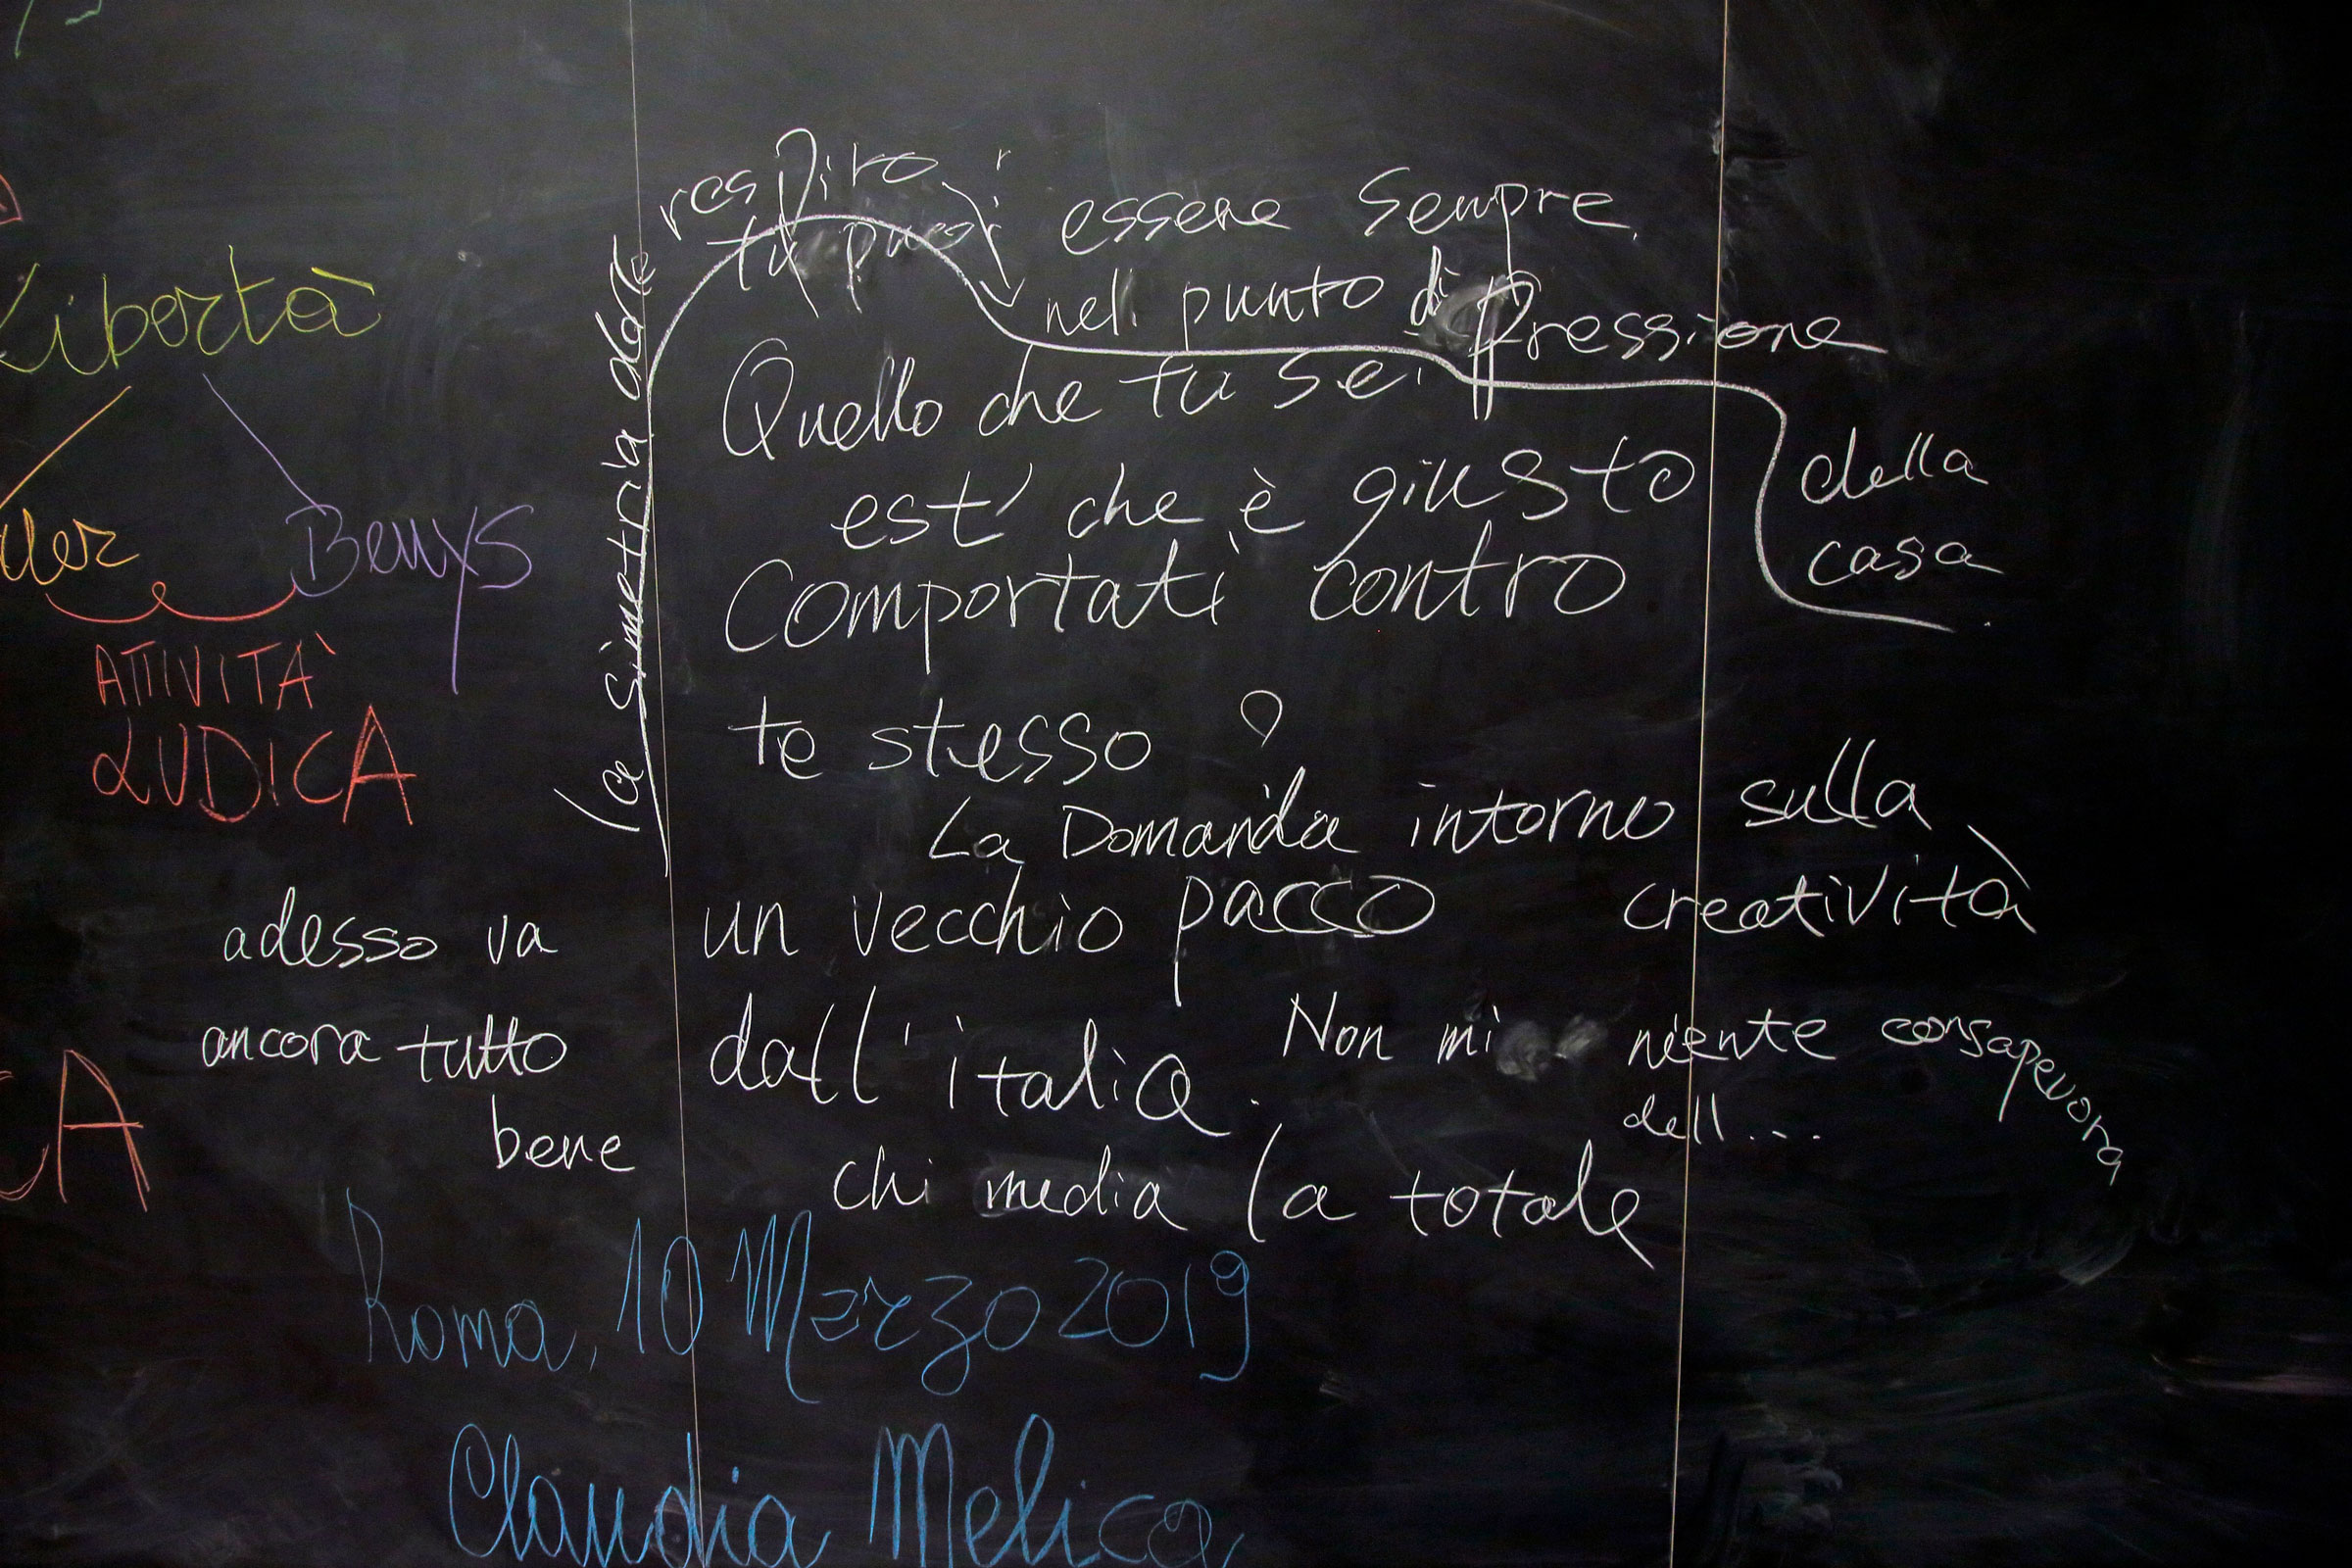 Libertà
Beuys
ATTIVITÀ
LUDICA
la simetria
respiro
tu puoi essere sempre
nel punto di pressione
della
casa
Quello che tu sei
est' che è giusto
Comportati contro
te stesso?
La Domanda intorno sulla
creatività
un vecchio pacco
dall'italia.
Non mi niente consapevora
dell...
chi media la totale
adesso va
ancora tutto
bene
Roma, 10 Marzo 2019
Claudia Melica